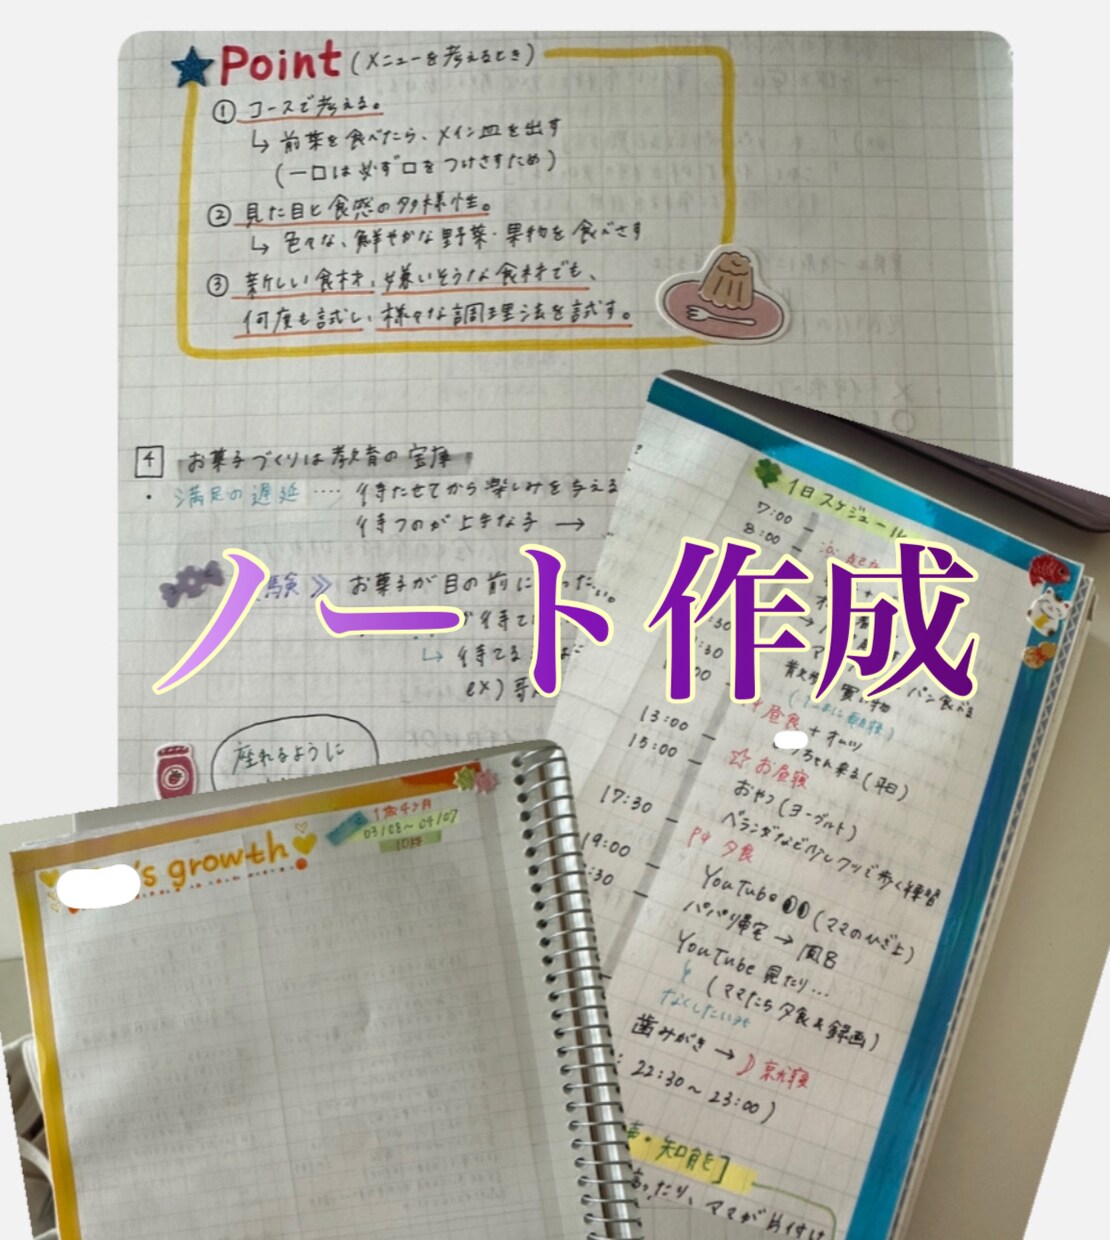 Point (メニューを考えるとき)
① コースで考える。
↳ 前菜を食べたら、メイン皿を出す
(一口は必ず口をつけさすため)
② 見た目と食感の多様性。
↳ 色々な、鮮やかな野菜・果物を食べさす
③ 新しい食材、嫌いそうな食材でも、
何度も試し、様々な調理法を試す。
4 お菓子づくりは教育の宝庫
・満足の遅延 …… 待たせてから楽しみを与える
待つのが上手な子 →
験 》 お菓子が目の前に
ex)
座れるように
ノート作成
1日スケジュール
7:00 –
8:00 –
パン食べる
昼食 + オムツ
13:00 –
15:00 –
☆お昼寝
おやつ(ヨーグルト)
ベランダなど少しクツで歩く練習
17:30 –
夕食
19:00 –
:30 –
YouTube (ママのひざ上)
パパり帰宅 → 風呂
YouTube 見たり…
(ママたち夕食&録画)
なくしたい
歯みがき → 就寝
22:30〜23:00)
・知能]
たり、ママが片付け
's growth
1歳4ヶ月
03/08〜04/07